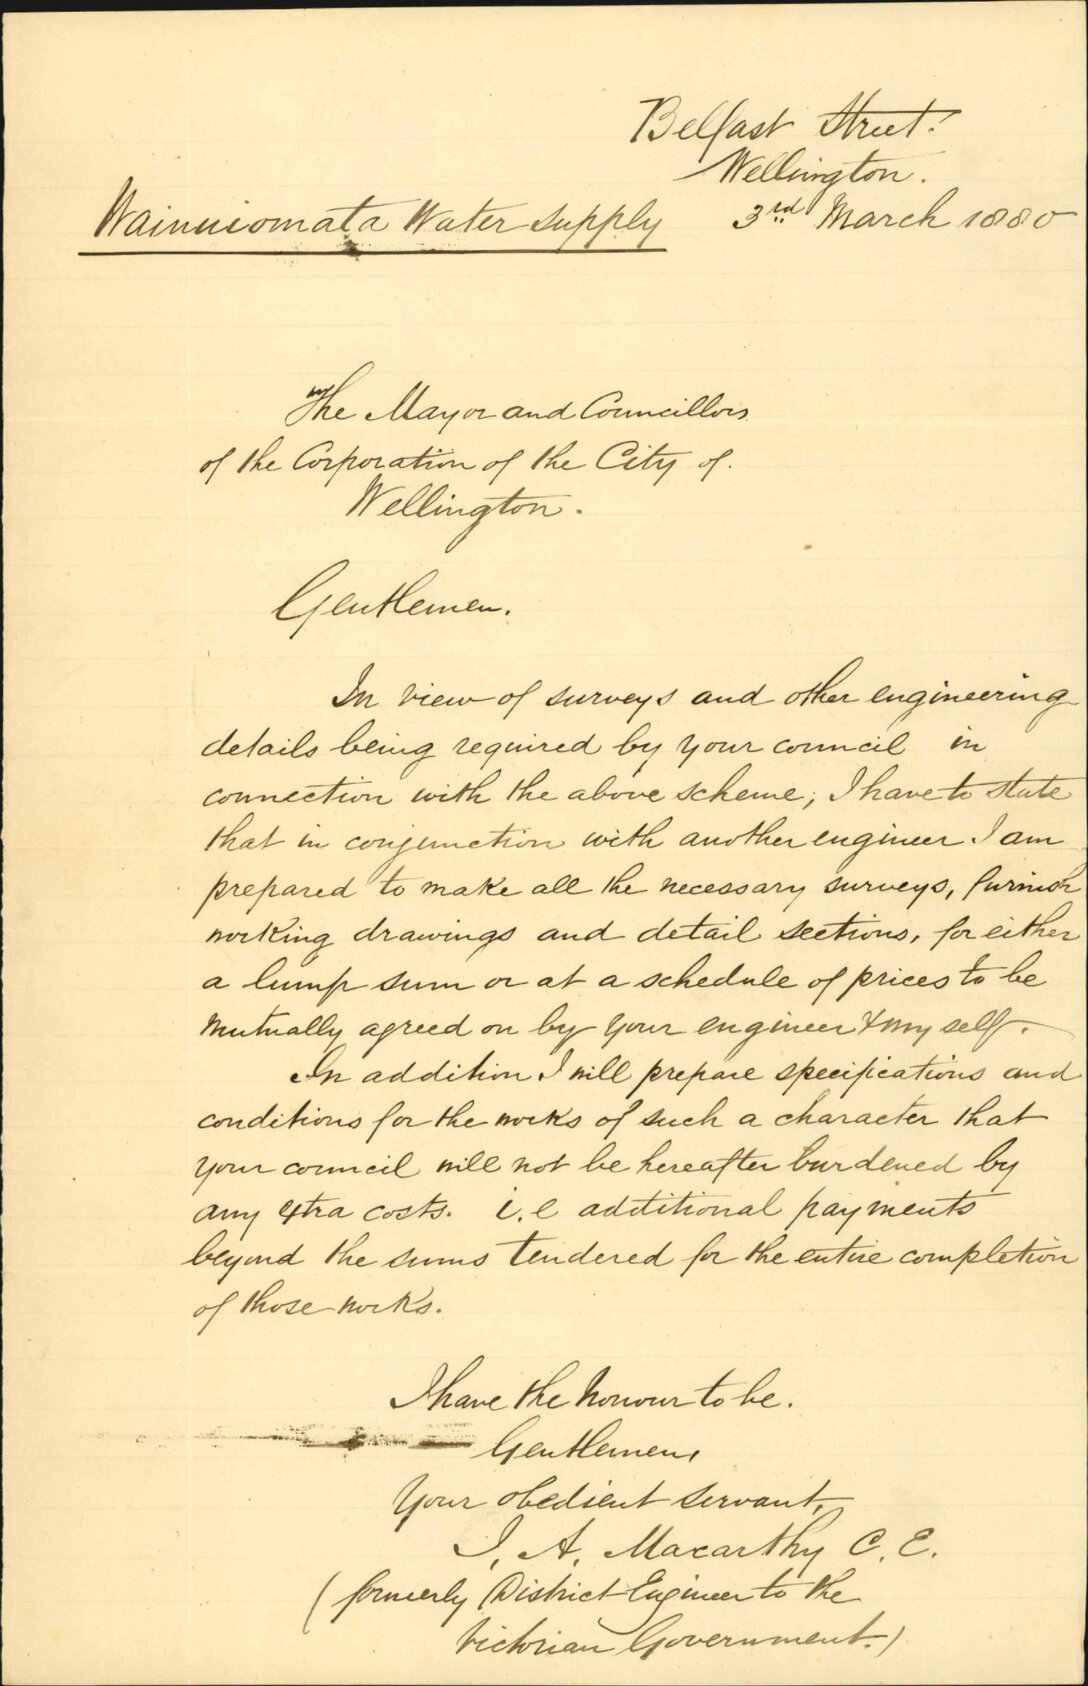 Belfast Street.
Wellington.
Wainuiomata Water Supply
3rd March 1880
The Mayor and Councillors
of the Corporation of the City of.
Wellington.
Gentlemen.
In view of surveys and other engineering
details being required by your council in
connection with the above scheme; I have to state
that in conjunction with another engineer I am
prepared to make all the necessary surveys, furnish
working drawings and detail sections, for either
a lump sum or at a schedule of prices to be
mutually agreed on by your engineer & my self.
In addition I will prepare specifications and
conditions for the works of such a character that
your council will not be hereafter burdened by
any extra costs. i.e additional payments
beyond the sums tendered for the entire completion
of those works.
I have the honour to be.
Gentlemen,
Your obedient servant,
J. A. Macarthy C. E.
(formerly District Engineer to the
Victorian Government.)